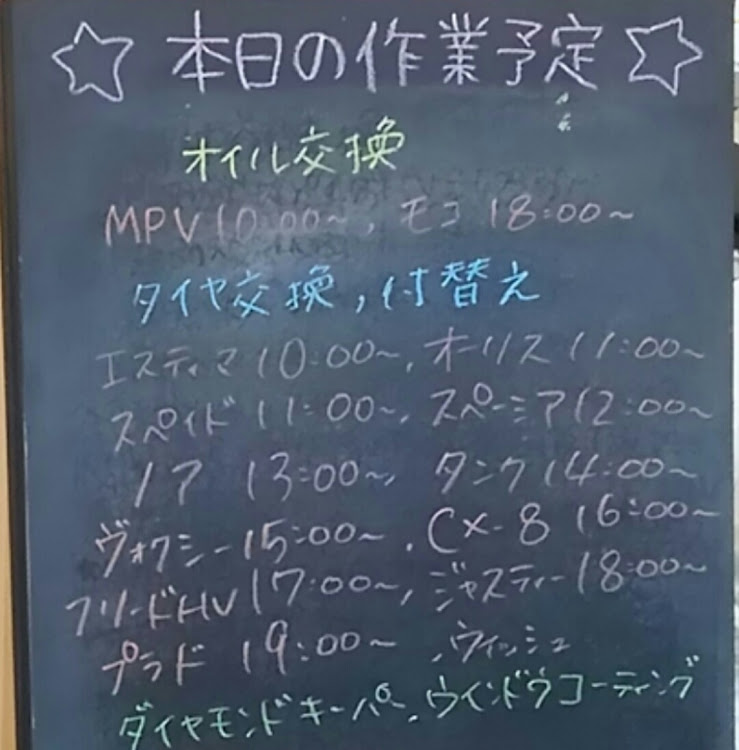 ☆本日の作業予定☆
オイル交換
MPV 10:00〜, モコ 18:00〜
タイヤ交換,付替え
エスティマ10:00〜,オーリス11:00〜
スペイド 11:00〜,スペーシア12:00〜
ノア 13:00〜, タンク14:00〜
ヴォクシー15:00〜,CX-8 16:00〜
フリードHV17:00〜,ジャスティー18:00〜
プラド 19:00〜 ,ウィッシュ
ダイヤモンドキーパー,ウインドウコーティング